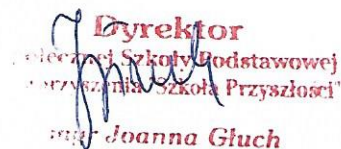 Dyrektor
Szkoły Podstawowej
"Szkoła Przyszłości"
mgr Joanna Głuch